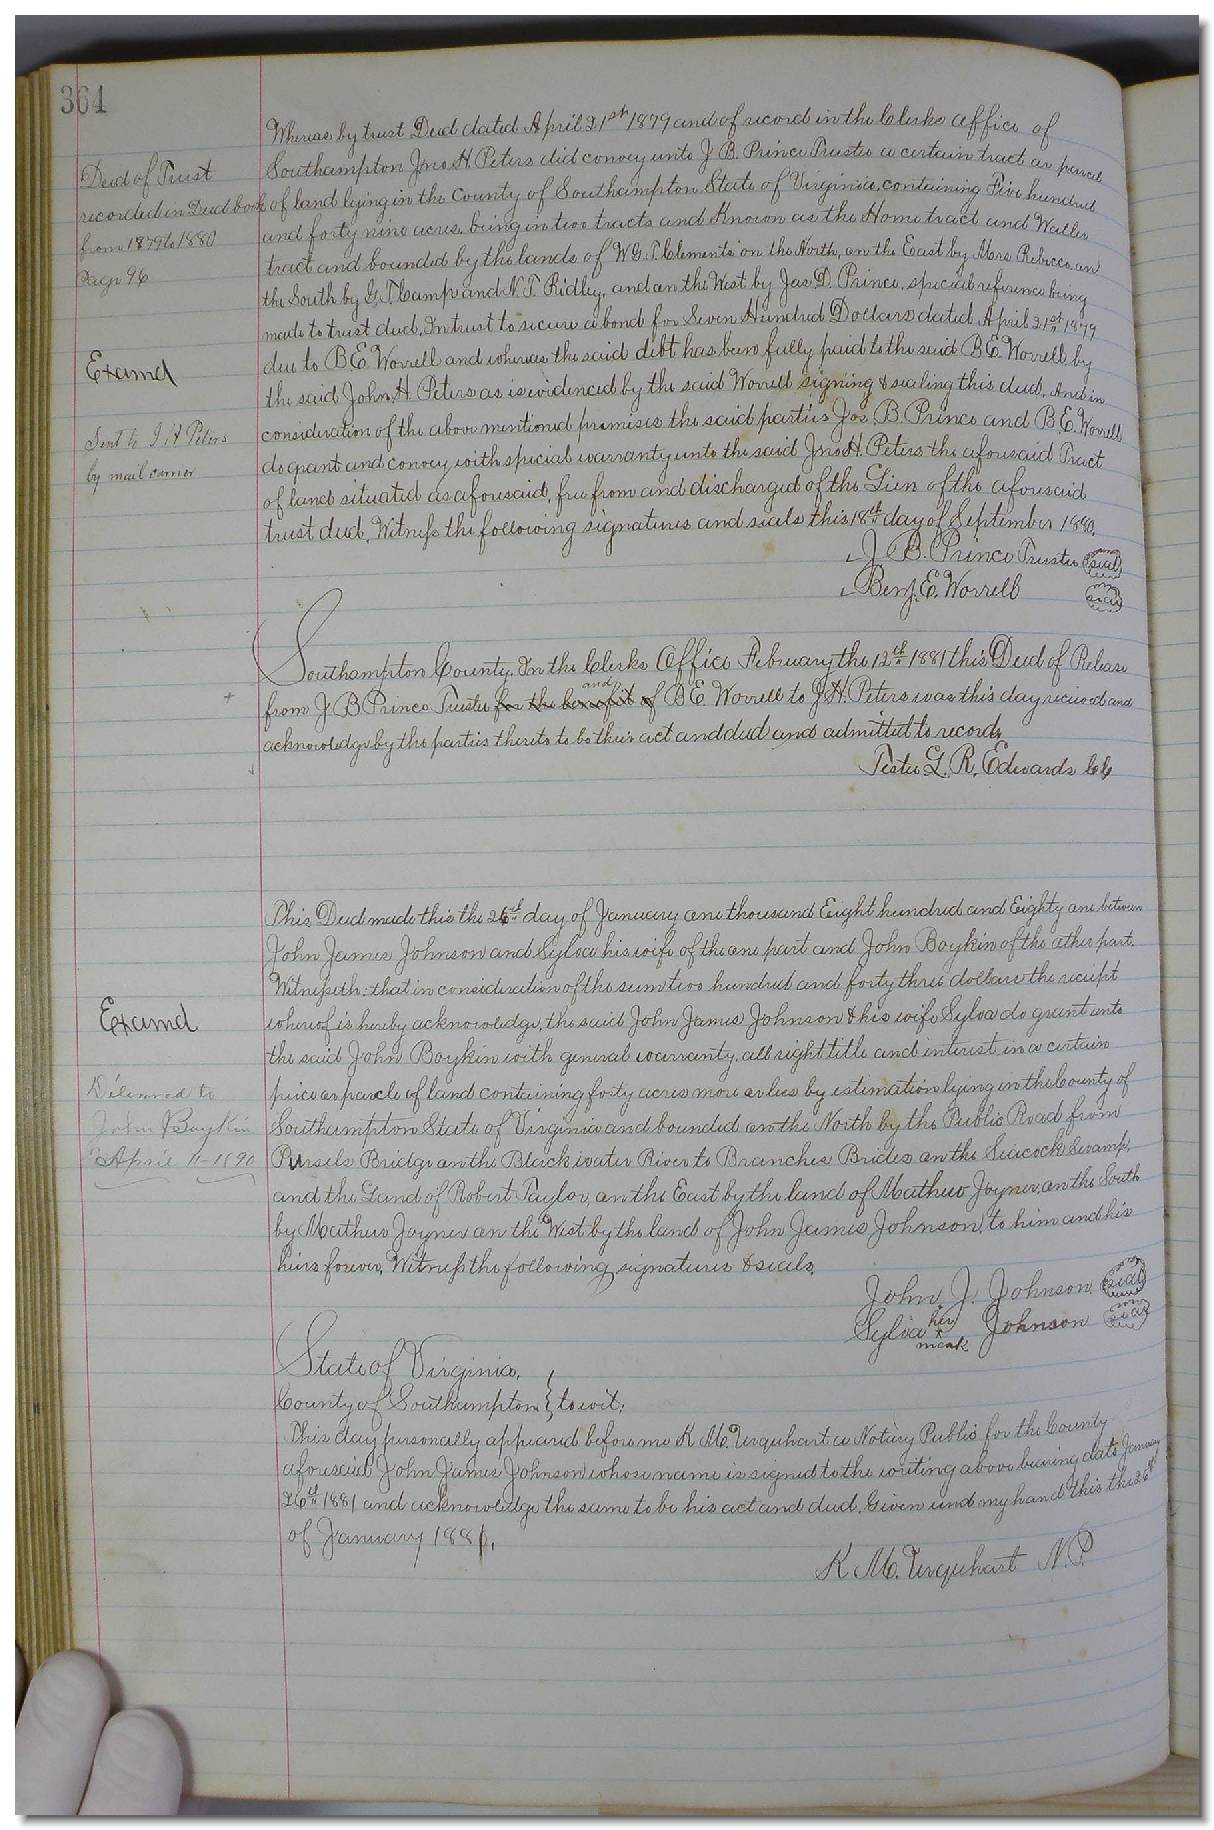 364
Deed of Trust
recorded in Deed book
from 1879 to 1880
Page 96
Examd
Sent to J H Peters
by mail
Whereas by trust Deed dated April 21st 1879 and of record in the Clerks Office of
Southampton Jno. H. Peters did convey unto J B. Prince Trustee a certain tract or parcel
of land lying in the County of Southampton State of Virginia, containing Five hundred
and forty nine acres, being in two tracts and Known as the Home tract and Waller
tract and bounded by the lands of W. G. T. Clements on the North, on the East by Mrs Rebecca, on
the South by G. T. Camp and N. T. Ridley, and on the West by Jas. D. Prince, special reference being
made to trust deed, In trust to secure a bond for Seven Hundred Dollars dated April 21st 1879
due to B E. Worrell and whereas the said debt has been fully paid to the said B E. Worrell by
the said John. H. Peters as is evidenced by the said Worrell signing & sealing this deed, And in
consideration of the above mentioned premises the said parties Jos. B. Prince and B. E. Worrell
do grant and convey with special warranty unto the said Jno. H. Peters the aforesaid Tract
of land situated as aforesaid, free from and discharged of the Lien of the aforesaid
trust deed, Witness the following signatures and seals this 18th day of September 1880.
J B. Prince Trustee seal
Benj. E. Worrell seal
Southampton County. In the Clerks Office February the 12th 1881 this Deed of Release
and
from J B Prince Trustee for the benefit of B E Worrell to J. H. Peters was this day received and
acknowledge by the parties thereto to be their act and deed and admitted to record,
Teste L. R. Edwards CC
Examd
Delivered to
John Boykin
April 11-1890
This Deed made this the 26th day of January one thousand Eight hundred and Eighty one between
John James Johnson and Sylva his wife of the one part and John Boykin of the other part.
Witnesseth: that in consideration of the sum two hundred and forty three dollars the receipt
whereof is hereby acknowledge, the said John James Johnson & his wife Sylva do grant unto
the said John Boykin with general warranty, all right title and interest in a certain
peice or parcle of land containing forty acres more or less by estimation lying in the County of
Southampton State of Virginia and bounded on the North by the Public Road from
Pursels Bridge on the Blackwater River to Branches Bridge on the Seacock Swamp,
and the Land of Robert Taylor, on the East by the land of Mathew Joyner, on the South
by Mathew Joyner on the West by the land of John James Johnson, to him and his
heirs forever, Witness the following signatures & seals.
John. J. Johnson seal
Sylva her x mark Johnson seal
State of Virginia,
County of Southampton } to wit:
This day personally appeared before me K M. Urquhart a Notary Public for the County
aforesaid John James Johnson whose name is signed to the writing above bearing date January
26th 1881 and acknowledge the same to be his act and deed. Given und my hand this the 26th
of January 1881.
K M. Urquhart N. P.